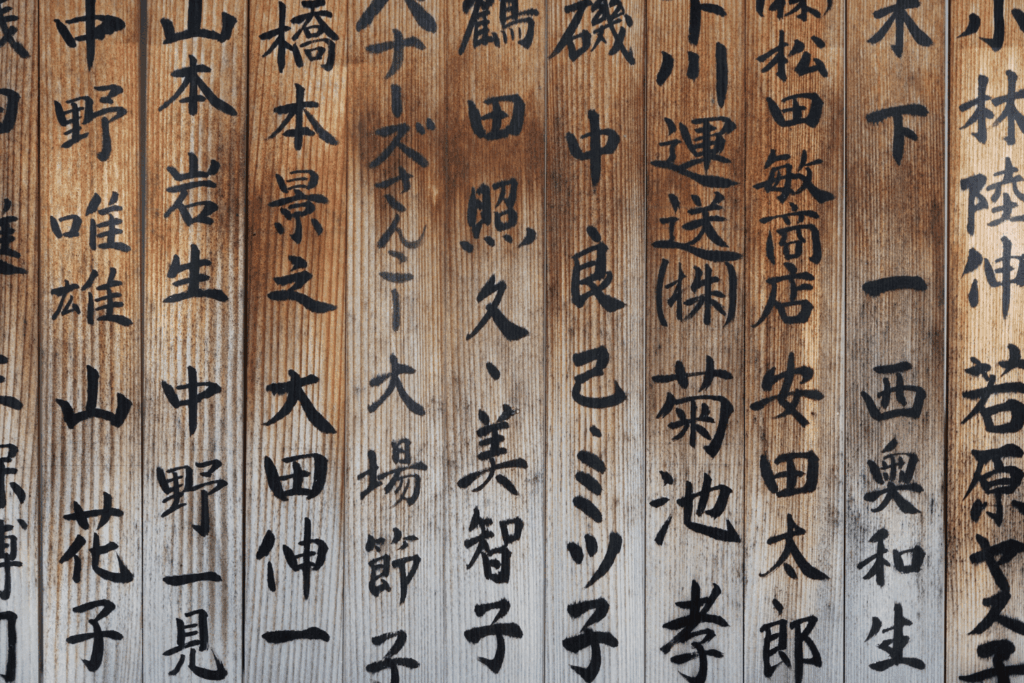 小林陸伸 若原ヤス子
木下一 西奥和生
㈱松田敏商店 安田太郎
下川運送㈱ 菊池孝
磯中良己、ミツ子
鶴田照久、美智子
ハナーズさんこー 大場節子
橋本景之 大田伸一
山本岩生 中野一見
中野唯雄 山花子